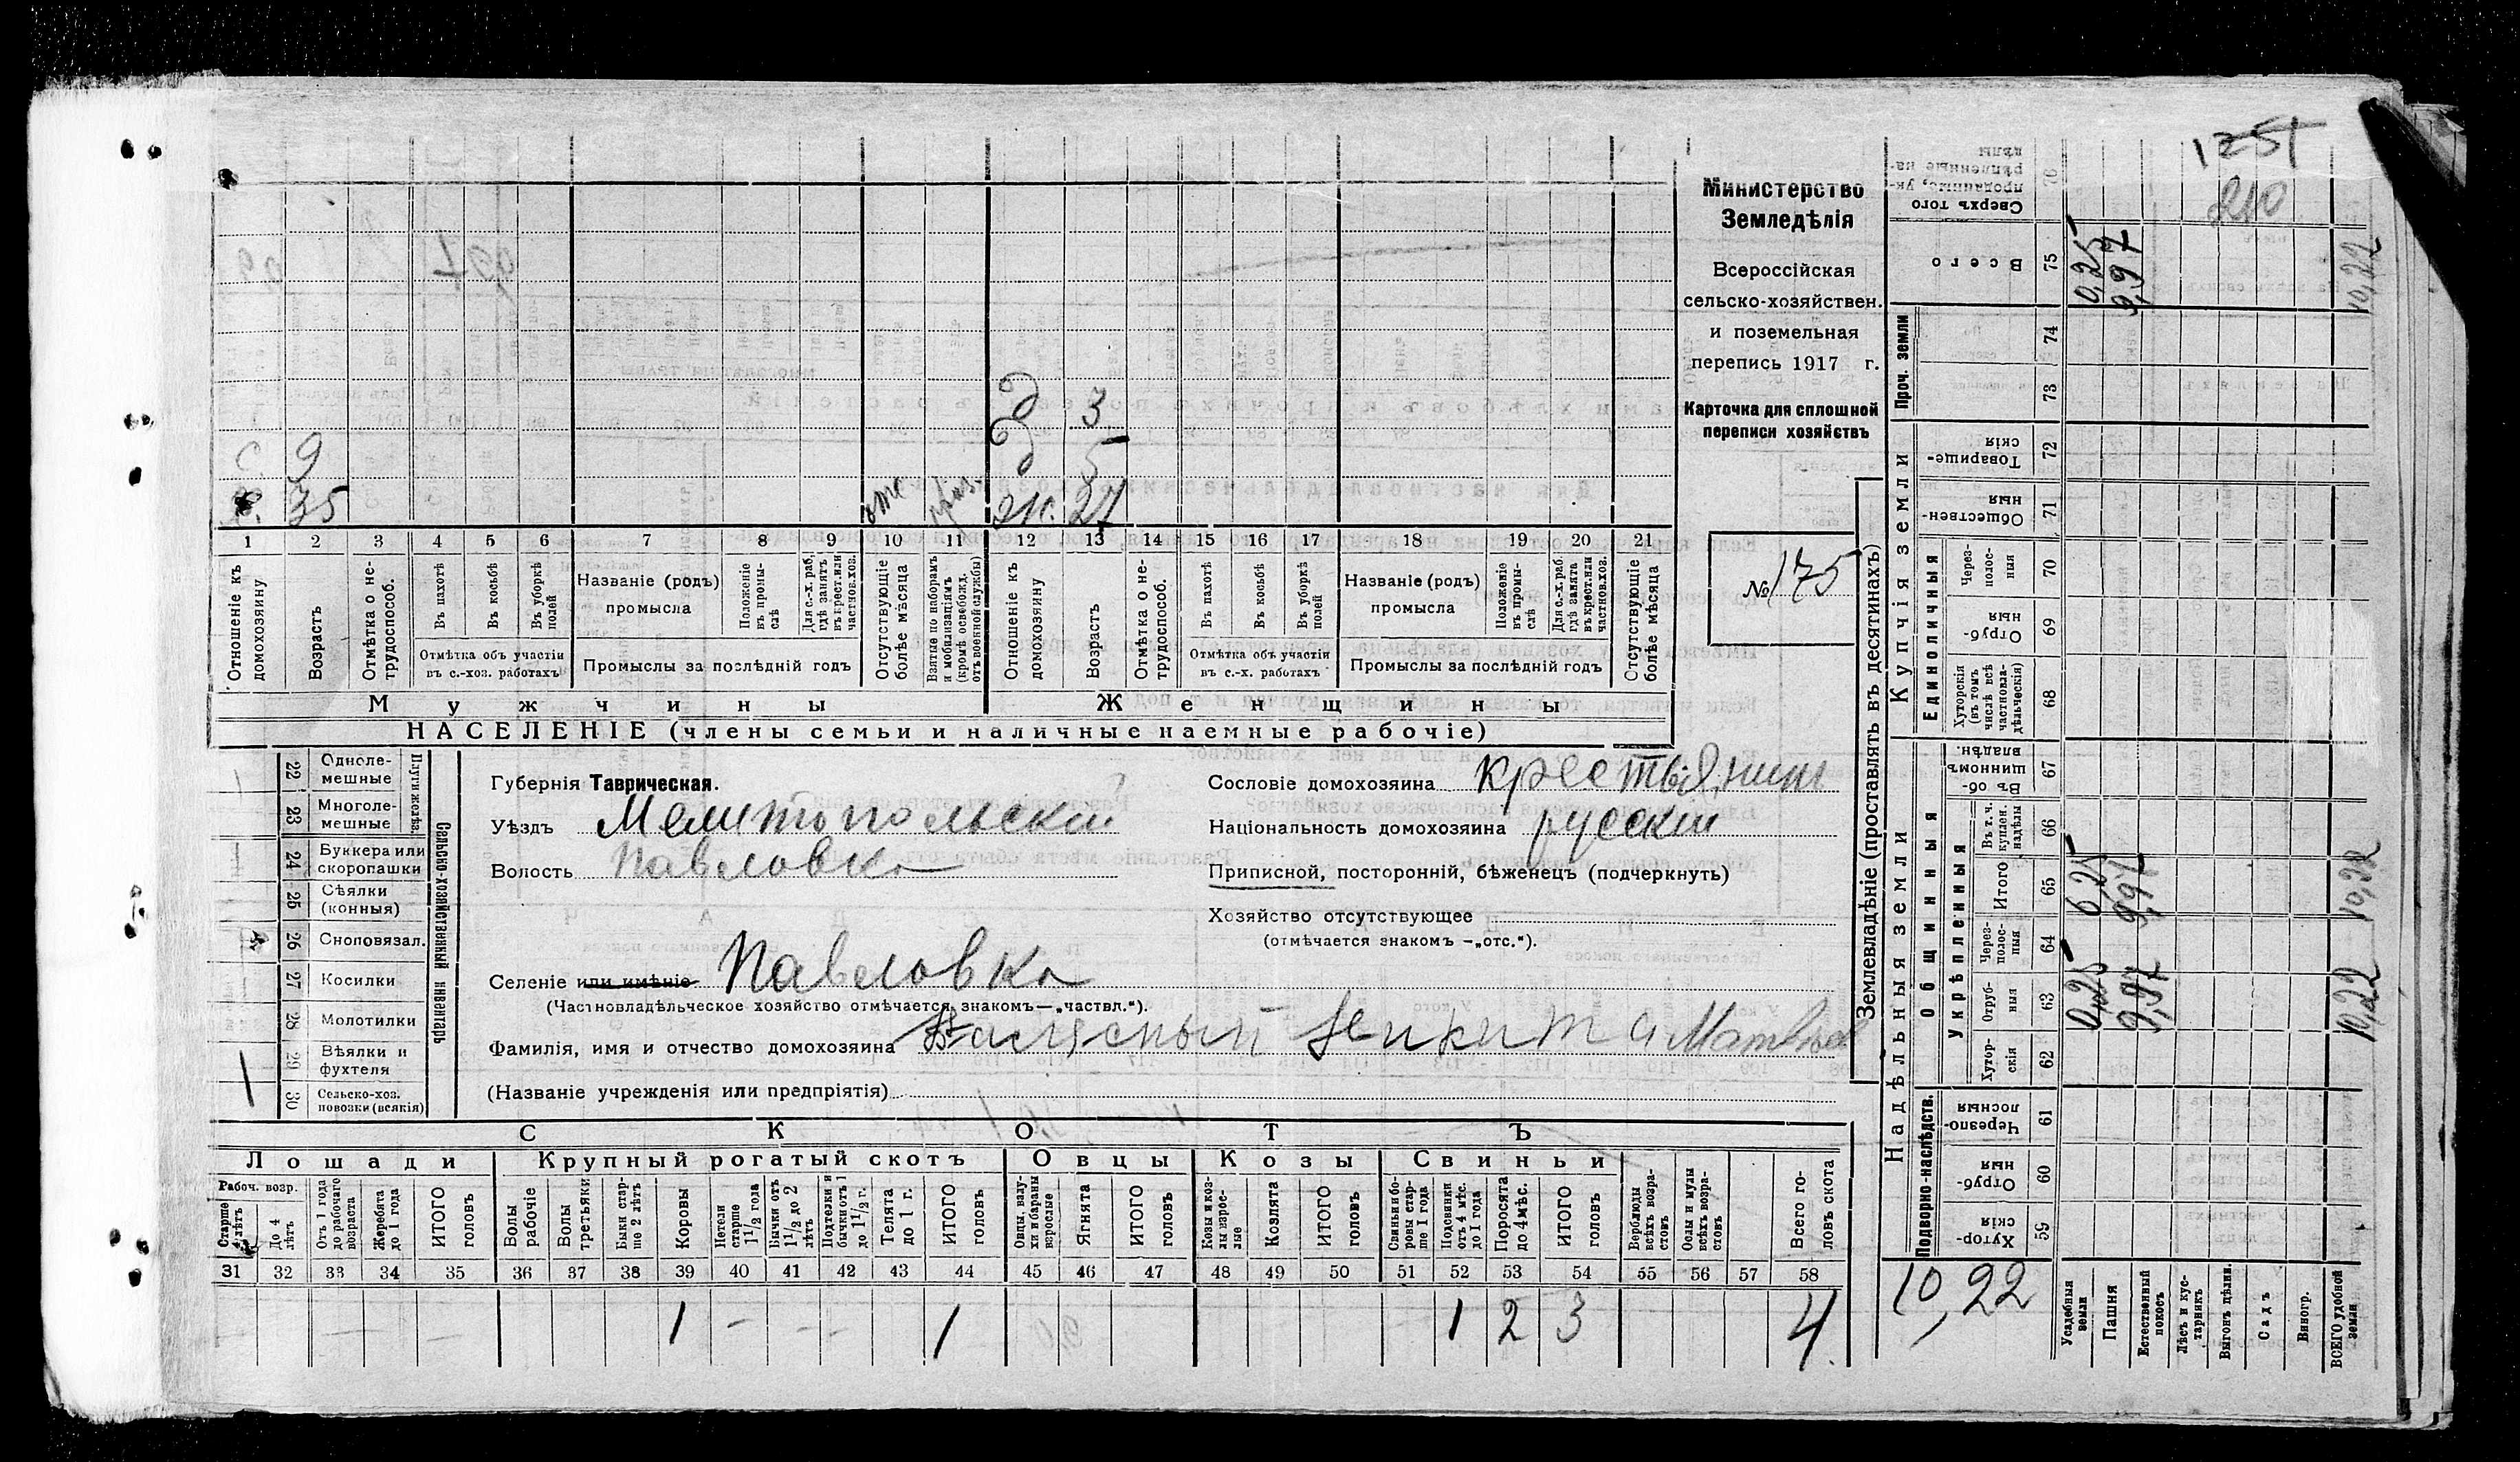 1251
210
Министерство
Земледѣлія
Всероссійская
сельско-хозяйствен.
и поземельная
перепись 1917 г.
Карточка для сплошной
переписи хозяйствъ
№ 175
д 3
С. 9 д 5
35 отс 27
1 2 3 4 5 6 7 8 9 10 11 12 13 14 15 16 17 18 19 20 21
Отношеніе къ домохозяину
Возрастъ
Отмѣтка о не-трудоспособ.
Въ пахотѣ
Въ косьбѣ
Въ уборкѣ полей
Отмѣтка объ участіи въ с.-хоз. работахъ
Названіе (родъ) промысла
Положеніе въ промы-слѣ
Для с.-х. раб, гдѣ занятъ въ крест. или частнов. хоз.
Промыслы за послѣдній годъ
Отсутствующіе болѣе мѣсяца
Взятые по наборамъ и мобилизаціямъ (кромѣ освобожд. отъ военной службы)
Отношеніе къ домохозяину
Возрастъ
Отмѣтка о не-трудоспособ.
Въ пахотѣ
Въ косьбѣ
Въ уборкѣ полей
Отмѣтка объ участіи въ с.-х. работахъ
Названіе (родъ) промысла
Положеніе въ промы-слѣ
Для с.-х. раб. гдѣ занята въ крест. или частнов. хоз.
Промыслы за послѣдній годъ
Отсутствующіе болѣе мѣсяца
Мужчины Женщины
НАСЕЛЕНІЕ (члены семьи и наличные наемные рабочіе)
22 Одноле-мешные
23 Многоле-мешные
Плуги желѣз.
24 Буккера или скоропашки
25 Сѣялки (конныя)
26 Сноповязал.
27 Косилки
28 Молотилки
29 Вѣялки и фухтеля
30 Сельско-хоз. повозки (всякія)
Сельско-хозяйственный инвентарь
Губернія Таврическая.
Уѣздъ Мелитопольскій
Волость Павловка
Селеніе или имѣніе Павловка
(Частновладѣльческое хозяйство отмѣчается знакомъ—„частвл.“).
Фамилія, имя и отчество домохозяина
(Названіе учрежденія или предпріятія)
Сословіе домохозяина крестьянинъ
Національность домохозяина русскій
Приписной, посторонній, бѣженецъ (подчеркнуть)
Хозяйство отсутствующее
(отмѣчается знакомъ —„отс.“).
СКОТЪ
Лошади Крупный рогатый скотъ Овцы Козы Свиньи
Рабоч. возр.
Старше 4 лѣтъ
До 4 лѣтъ
Отъ 1 года до рабочаго возраста
Жеребята до 1 года
ИТОГО головъ
Волы рабочіе
Волы третьяки
Быки стар-ше 2 лѣтъ
Коровы
Нетели старше 1½ года
Бычки отъ 1½ до 2 лѣтъ
Подтелки и бычки отъ 1 до 1½ г.
Телята до 1 г.
ИТОГО головъ
Овцы, валу-хи и бараны взрослые
Ягнята
ИТОГО головъ
Козы и коз-лы взрос-лые
Козлята
ИТОГО головъ
Свиньи и бо-ровы стар-ше 1 года
Подсвинки отъ 4 мѣс. до 1 года
Поросята до 4 мѣс.
ИТОГО головъ
Верблюды всѣхъ возра-стовъ
Ослы и мулы всѣхъ возра-стовъ
Всего го-ловъ скота
31 32 33 34 35 36 37 38 39 40 41 42 43 44 45 46 47 48 49 50 51 52 53 54 55 56 57 58
1 – – – 1 1 2 3 4
Землевладѣніе (проставлять въ десятинахъ)
Сверхъ того проданные, ук-рѣпленные на-дѣлы 76
Всего 75
0,25
9,97
10,22
Проч. земли
74
73
Купчія земли
Товарище-скія 72
Обществен-ныя 71
Единоличныя
Через-полос-ныя 70
Отруб-ныя 69
Хуторскія (въ томъ числѣ всѣ частновла-дѣльческія) 68
Надѣльныя земли
Общинныя
Въ об-щинномъ владѣн. 67
Укрѣпленныя
Въ т. ч. куплен. надѣлы 66
Итого 65
0,25
9,97
10,22
Через-полос-ныя 64
Отруб-ныя 63
0,25
9,97
10,22
Хутор-скія 62
Подворно-наслѣдств.
Черезпо-лосныя 61
Отруб-ныя 60
Хутор-скія 59
10,22
Усадебныя земли
Пашня
Естественный покосъ
Лѣсъ и кус-тарникъ
Выгонъ цѣлин.
Садъ
Виногр.
ВСЕГО удобной земли